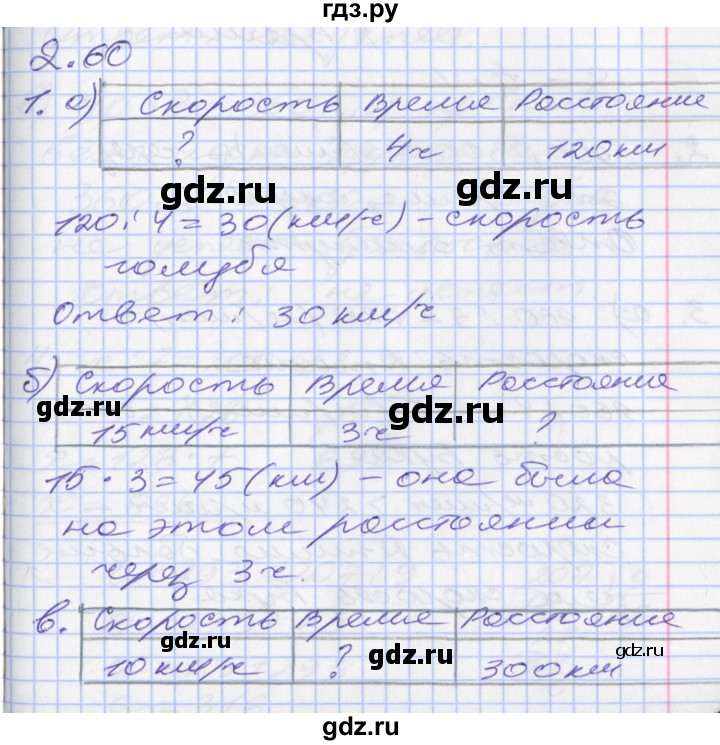 гдз.ру
2.60
1. а) Скорость Время Расстояние
? 4ч 120км
gdz.ru
gdz.ru
120:4=30(км/ч) - скорость
голубя
Ответ: 30км/ч
б) Скорость Время Расстояние
gdz.ru
gdz.ru
15км/ч 3ч ?
15·3=45(км) - она была
на этом расстоянии
через 3ч.
в. Скорость Время Расстояние
gdz.ru
gdz.ru
gdz.ru
10км/ч ? 300км
gdz.ru